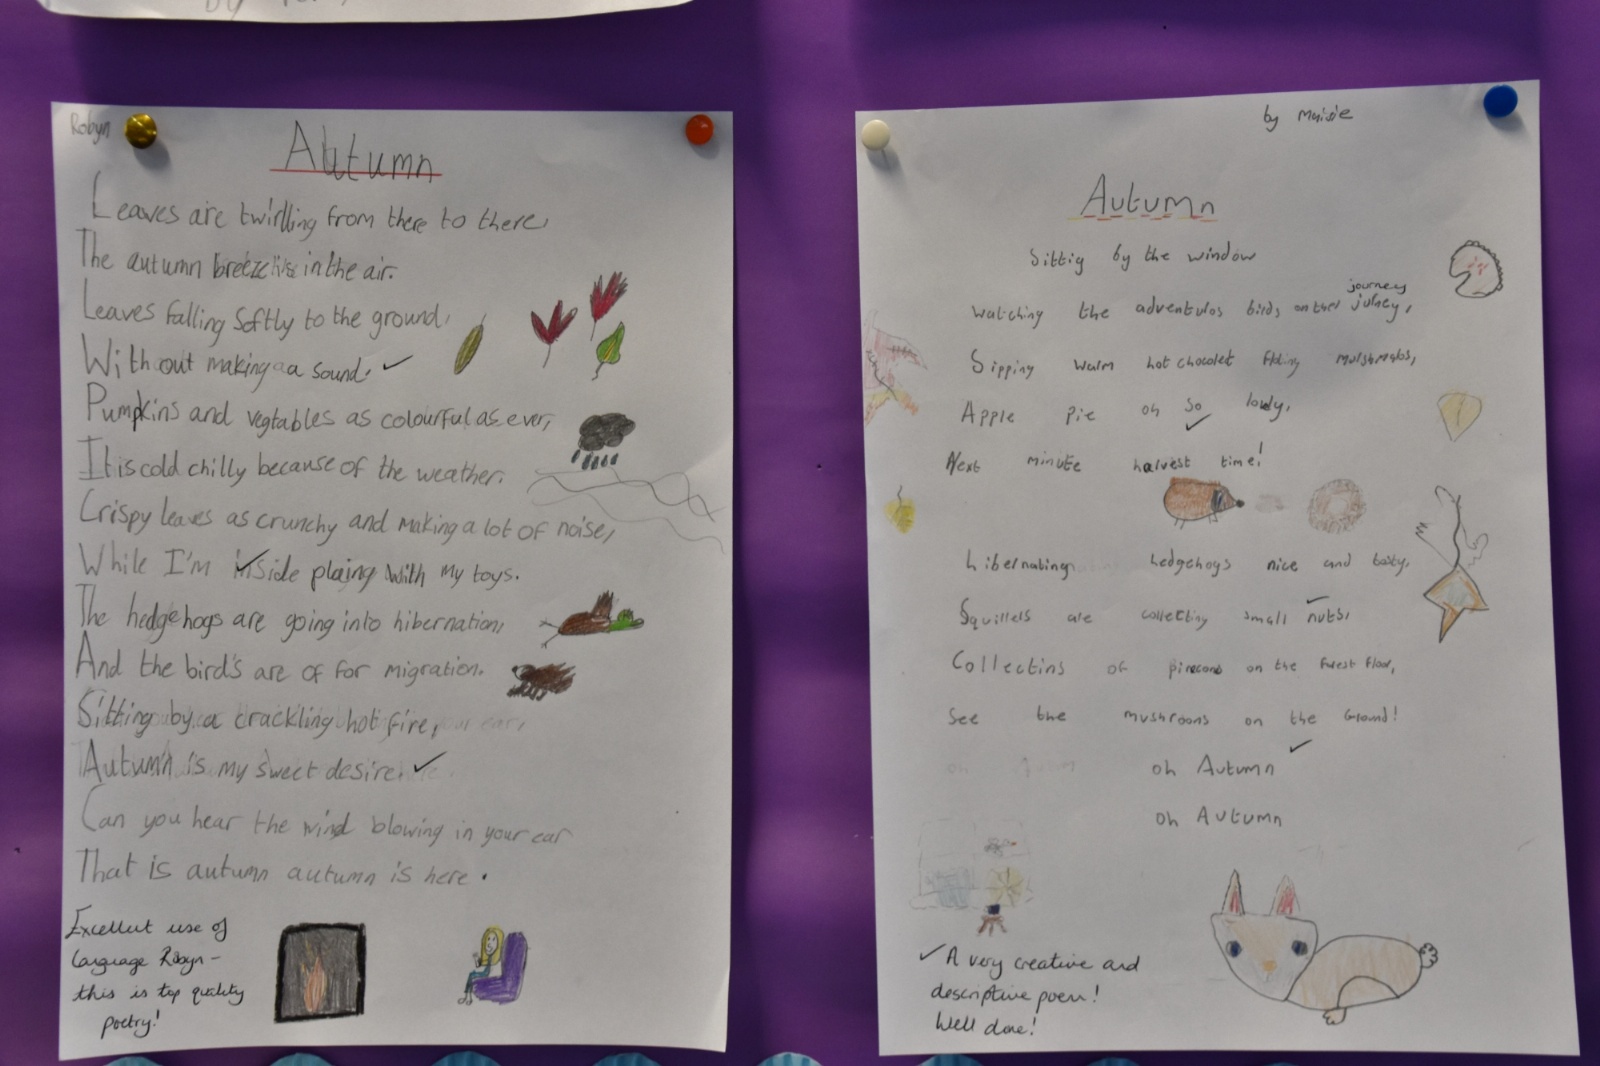 by
Robyn
Autumn
Leaves are twirlling from there to there,
The autumn breeze in the air.
Leaves falling softly to the ground,
Without making a sound.
Pumpkins and vegtables as colourful as ever,
It is cold chilly because of the weather.
Crispy leaves as crunchy and making a lot of noise,
While I'm inside plaing with my toys.
The hedgehogs are going into hibernation,
And the bird's are of for migration.
Sitting by a crackling hot fire,
Autumn is my sweet desire.
Can you hear the wind blowing in your ear
That is autumn autumn is here.
Excellent use of
language Robyn -
this is top quality
poetry!
by Maisie
Autumn
Sittig by the window
journey
Watching the adventulos birds on ther jurney,
Sipping warm hot chocolet
Apple pie oh so lovly,
Next minute harvest time!
hibernating hedgehogs nice and
Squillels are collecting small nuts,
Collectins of pinecons on the forest floor,
See the mushroons on the Ground!
oh Autumn
oh Autumn
A very creative and
descriptive poem!
Well done!